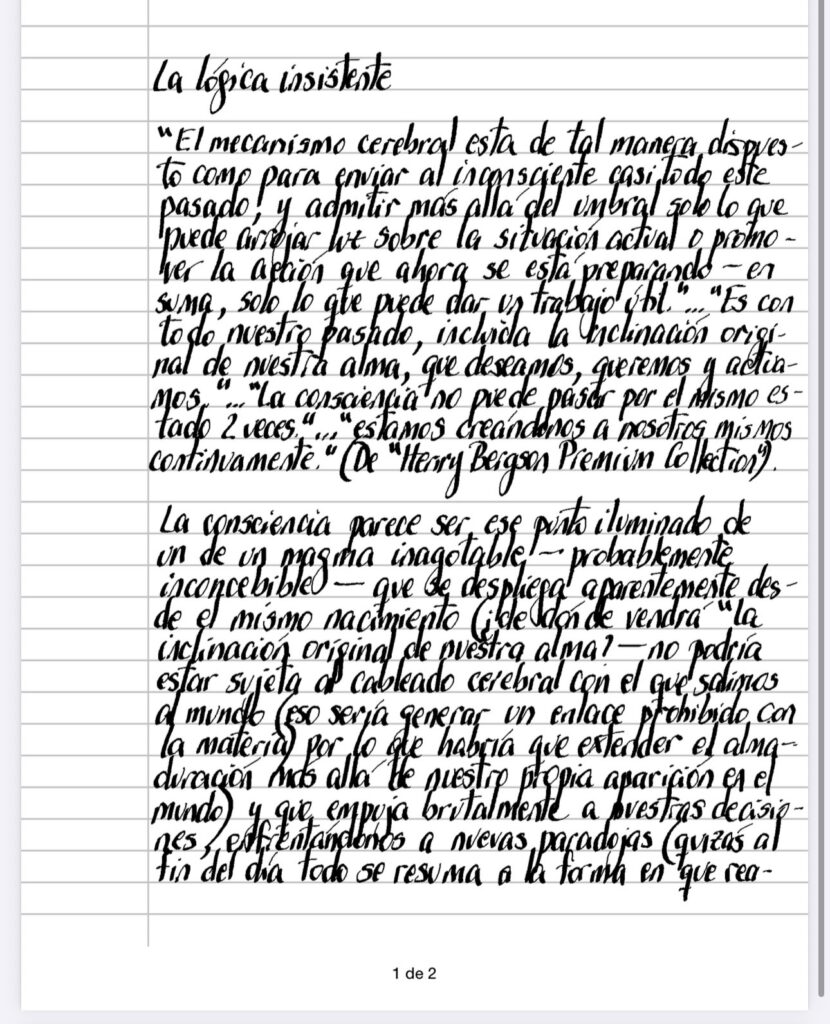 La lógica insistente
"El mecanismo cerebral esta de tal manera dispues-
to como para enviar al inconsciente casi todo este
pasado, y admitir más allá del umbral solo lo que
puede arrojar luz sobre la situación actual o promo-
ver la acción que ahora se está preparando — en
suma, solo lo que puede dar un trabajo útil."..."Es con
todo nuestro pasado, incluida la inclinación origi-
nal de nuestra alma, que deseamos, queremos y actúa-
mos."..."La consciencia no puede pasar por el mismo es-
tado 2 veces."..."estamos creándonos a nosotros mismos
continuamente." (De "Henry Bergson Premium Collection").
La consciencia parece ser ese punto iluminado de
un de un magma inagotable — probablemente
inconcebible — que se despliega aparentemente des-
de el mismo nacimiento (¿de dónde vendrá "la
inclinación original de nuestra alma? — no podría
estar sujeta al cableado cerebral con el que salimos
al mundo (eso sería generar un enlace prohibido con
la materia) por lo que habría que extender el alma-
duración más allá de nuestra propia aparición en el
mundo) y que empuja brutalmente a nuestras decisio-
nes, enfrentándonos a nuevas paradojas (quizás al
fin del día todo se resuma a la forma en que rea-
1 de 2